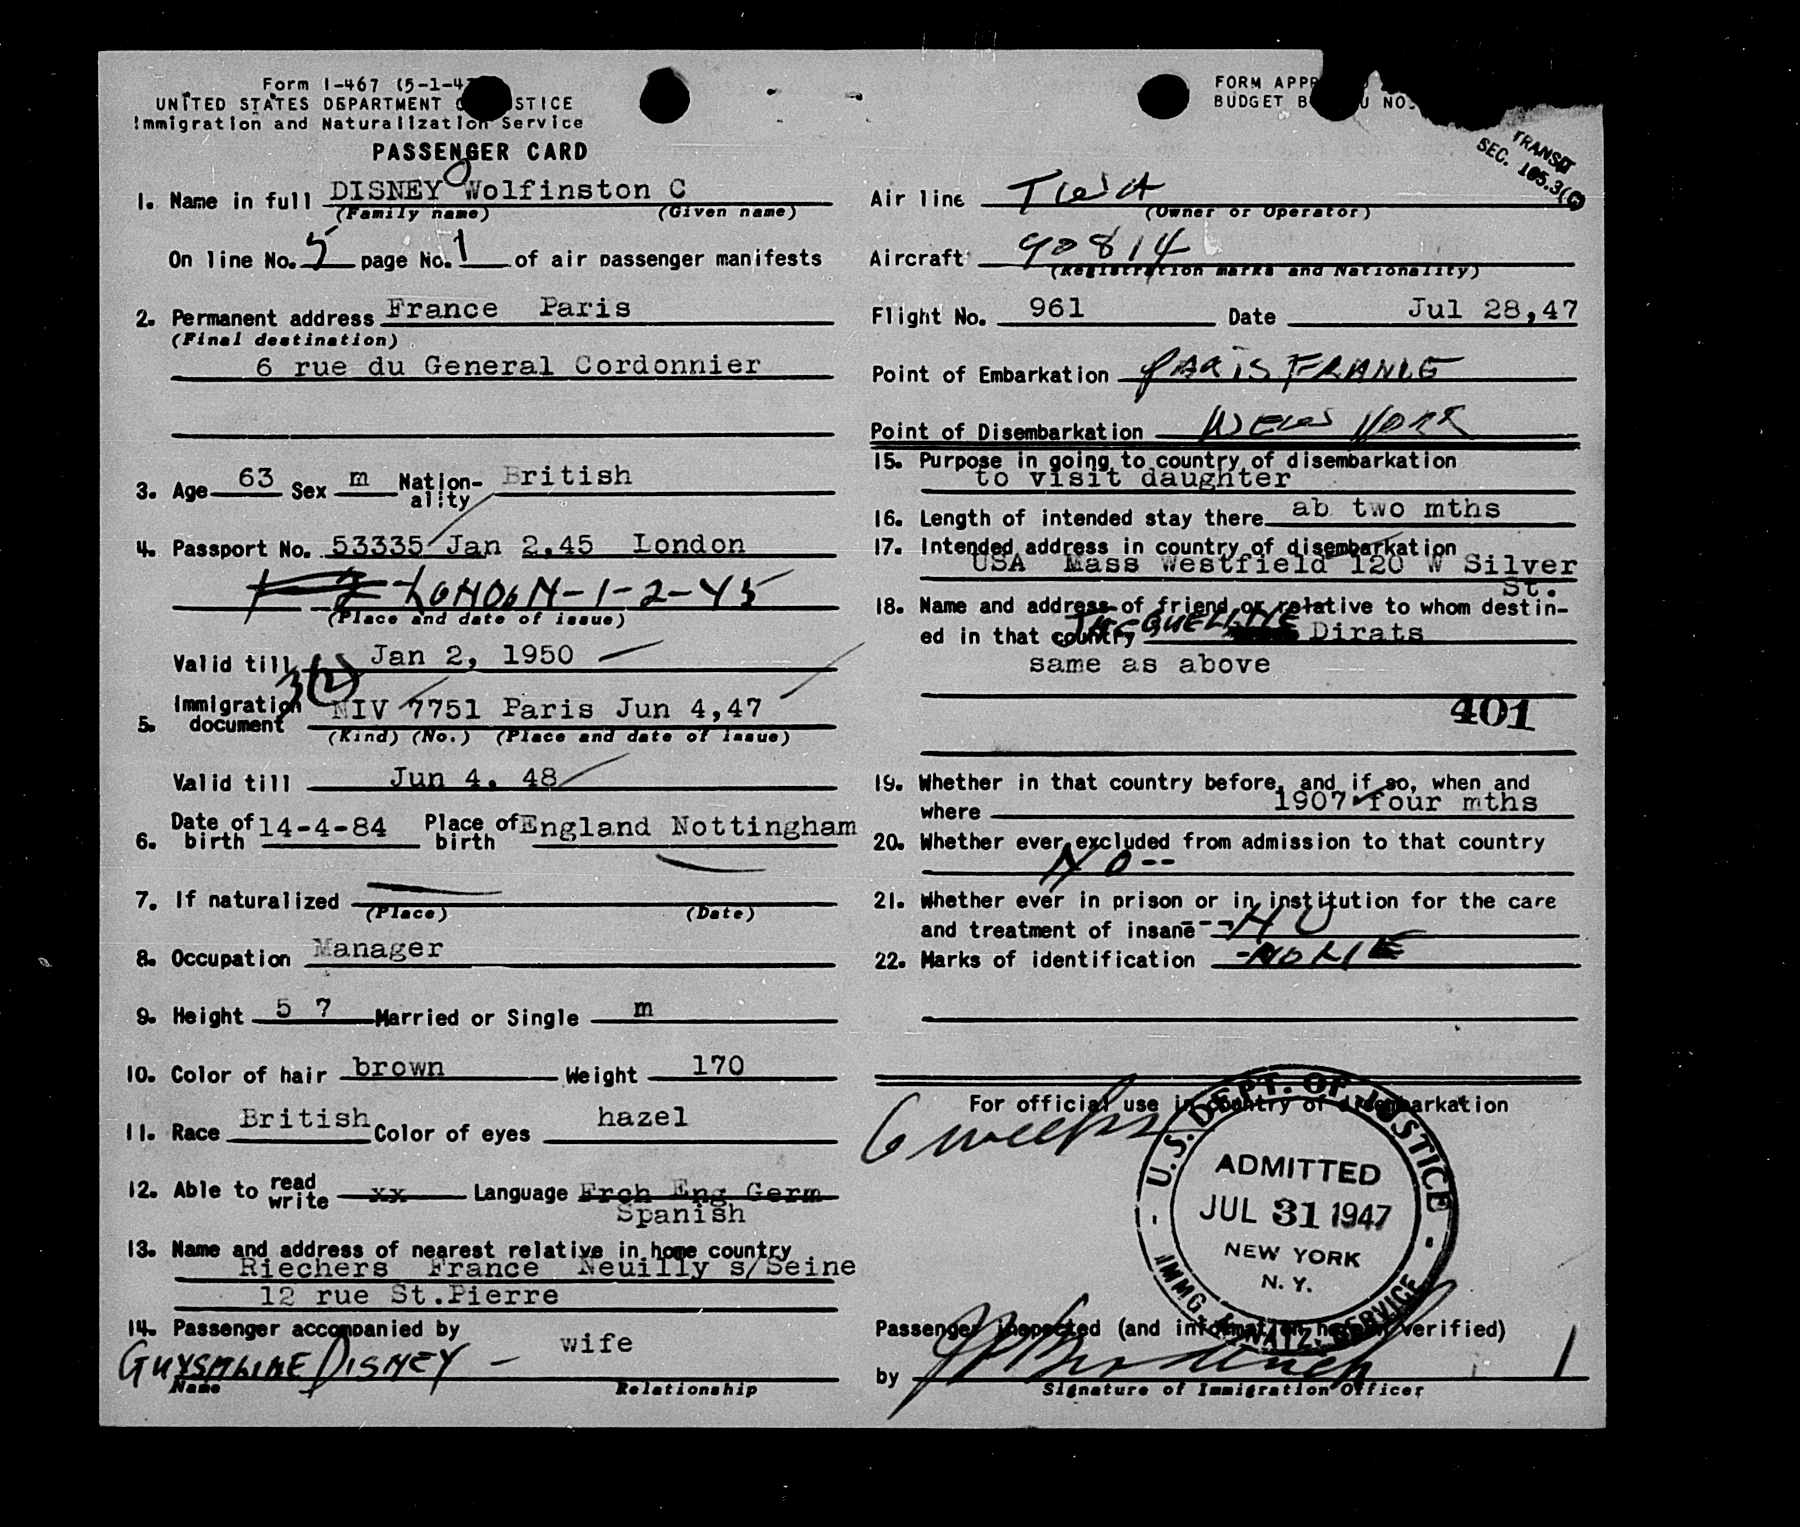 Form I-467 (5-1-4
UNITED STATES DEPARTMENT STICE
Immigration and Naturalization Service
PASSENGER CARD
FORM APPR
BUDGET B U NO.
TRANSIT
SEC. 105.3(
1. Name in full DISNEY Wolfinston C
(Family name) (Given name)
On line No. 5 page No. 1 of air passenger manifests
2. Permanent address France Paris
(Final destination)
6 rue du General Cordonnier
3. Age 63 Sex m Nation-ality British
4. Passport No. 53335 Jan 2.45 London
LONDON-1-2-45
(Place and date of issue)
Valid till Jan 2, 1950
3(2)
5. Immigration document NIV 7751 Paris Jun 4,47
(Kind) (No.) (Place and date of issue)
Valid till Jun 4. 48
6. Date of birth 14-4-84 Place of birth England Nottingham
7. If naturalized
(Place) (Date)
8. Occupation Manager
9. Height 5 7 Married or Single m
10. Color of hair brown Weight 170
11. Race British Color of eyes hazel
12. Able to read write xx Language Frch Eng Germ
Spanish
13. Name and address of nearest relative in home country
Riechers France Neuilly s/Seine
12 rue St.Pierre
14. Passenger accompanied by wife
GUYSMLINE DISNEY -
Name Relationship
Air line TWA
(Owner or Operator)
Aircraft 90814
(Registration marks and Nationality)
Flight No. 961 Date Jul 28,47
Point of Embarkation PARIS FRANCE
Point of Disembarkation NEW YORK
15. Purpose in going to country of disembarkation
to visit daughter
16. Length of intended stay there ab two mths
17. Intended address in country of disembarkation
USA Mass Westfield 120 W Silver
St.
18. Name and address of friend or relative to whom destin-
ed in that country JACQUELINE Dirats
same as above
401
19. Whether in that country before, and if so, when and
where 1907 four mths
20. Whether ever excluded from admission to that country
NO --
21. Whether ever in prison or in institution for the care
and treatment of insane --- NO
22. Marks of identification - NONE
For official use in country of disembarkation
6 weeks
U.S. DEPT. OF JUSTICE
ADMITTED
JUL 31 1947
NEW YORK
N. Y.
IMMG. & NATZ. SERVICE
Passenger inspected (and information hereon verified)
by
Signature of Immigration Officer
1